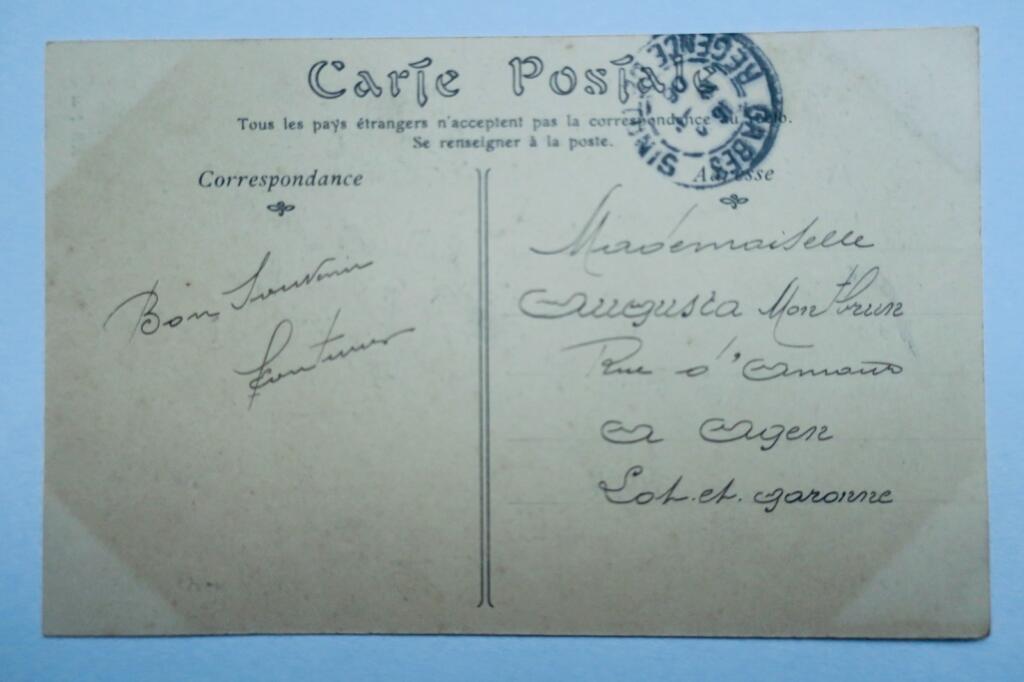 Carte Postale
Tous les pays étrangers n'acceptent pas la correspondance au recto.
Se renseigner à la poste.
Correspondance
Adresse
GABES
REGENCE
Bon Souvenir
Mademoiselle
Augusta Montbrun
Rue d'Amans
A Agen
Lot-et-Garonne